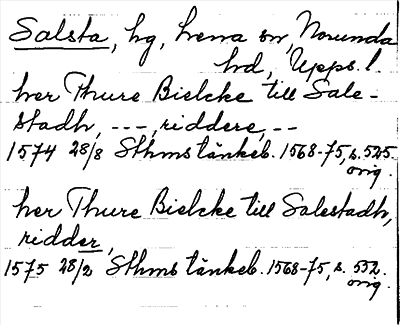 Salsta, hg, Lena sn, Norunda
hd, Upps. l.
her Thure Bielcke till Sale-
stadh, ---, riddere, --
1574 28/8 Sthms tänkeb. 1568-75, s. 525
orig.
her Thure Bielcke till Salestadh,
ridder,
1575 28/2 Sthms tänkeb. 1568-75, s. 552.
orig.